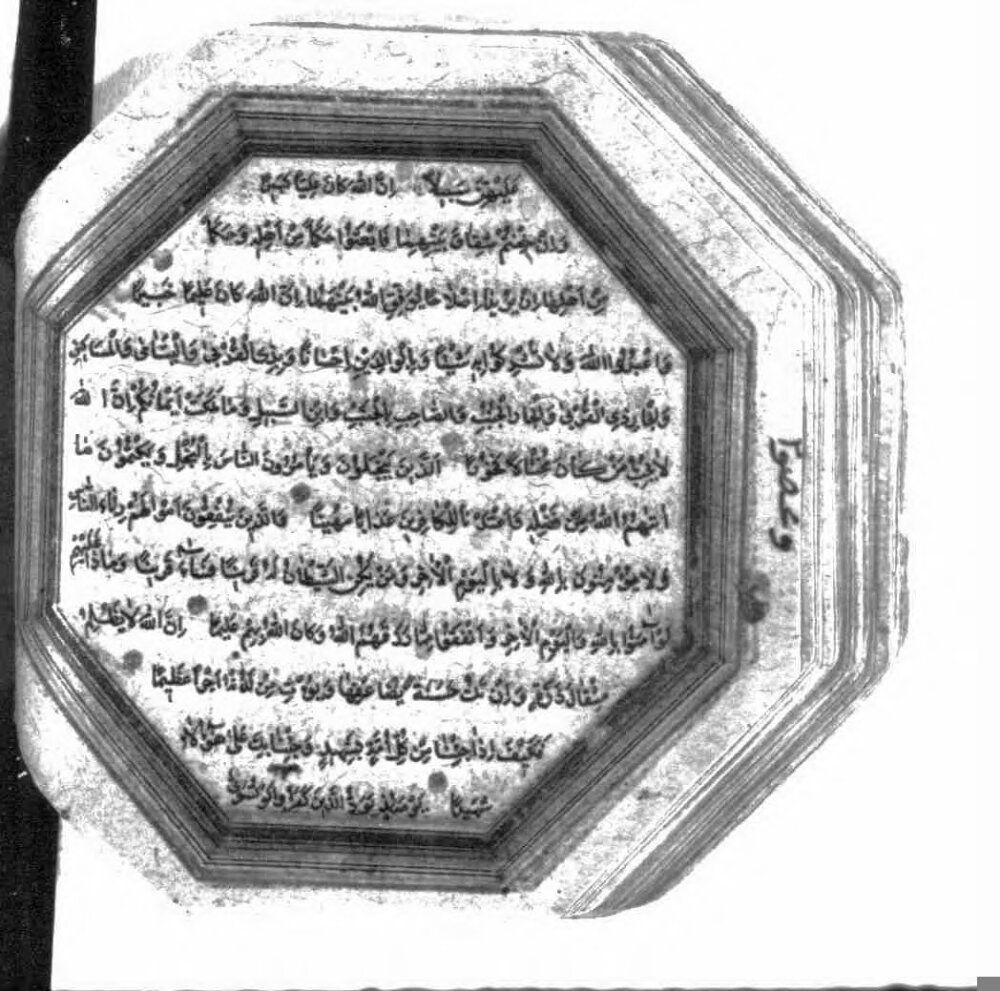 عَلَيْهِنَّ سَبِيلًا إِنَّ اللَّهَ كَانَ عَلِيًّا كَبِيرًا
وَإِنْ خِفْتُمْ شِقَاقَ بَيْنِهِمَا فَابْعَثُوا حَكَمًا مِنْ أَهْلِهِ وَحَكَمًا
مِنْ أَهْلِهَا إِنْ يُرِيدَا إِصْلَاحًا يُوَفِّقِ اللَّهُ بَيْنَهُمَا إِنَّ اللَّهَ كَانَ عَلِيمًا خَبِيرًا
وَاعْبُدُوا اللَّهَ وَلَا تُشْرِكُوا بِهِ شَيْئًا وَبِالْوَالِدَيْنِ إِحْسَانًا وَبِذِي الْقُرْبَى وَالْيَتَامَى وَالْمَسَاكِينِ
وَالْجَارِ ذِي الْقُرْبَى وَالْجَارِ الْجُنُبِ وَالصَّاحِبِ بِالْجَنْبِ وَابْنِ السَّبِيلِ وَمَا مَلَكَتْ أَيْمَانُكُمْ إِنَّ اللَّهَ
لَا يُحِبُّ مَنْ كَانَ مُخْتَالًا فَخُورًا الَّذِينَ يَبْخَلُونَ وَيَأْمُرُونَ النَّاسَ بِالْبُخْلِ وَيَكْتُمُونَ مَا
آتَيهُمُ اللَّهُ مِنْ فَضْلِهِ وَأَعْتَدْنَا لِلْكَافِرِينَ عَذَابًا مُهِينًا وَالَّذِينَ يُنْفِقُونَ أَمْوَالَهُمْ رِئَاءَ النَّاسِ
وَلَا يُؤْمِنُونَ بِاللَّهِ وَلَا بِالْيَوْمِ الْآخِرِ وَمَنْ يَكُنِ الشَّيْطَانُ لَهُ قَرِينًا فَسَاءَ قَرِينًا وَمَاذَا عَلَيْهِمْ
لَوْ آمَنُوا بِاللَّهِ وَالْيَوْمِ الْآخِرِ وَأَنْفَقُوا مِمَّا رَزَقَهُمُ اللَّهُ وَكَانَ اللَّهُ بِهِمْ عَلِيمًا إِنَّ اللَّهَ لَا يَظْلِمُ
مِثْقَالَ ذَرَّةٍ وَإِنْ تَكُ حَسَنَةً يُضَاعِفْهَا وَيُؤْتِ مِنْ لَدُنْهُ أَجْرًا عَظِيمًا
فَكَيْفَ إِذَا جِئْنَا مِنْ كُلِّ أُمَّةٍ بِشَهِيدٍ وَجِئْنَا بِكَ عَلَى هَؤُلَاءِ
شَهِيدًا يَوْمَئِذٍ يَوَدُّ الَّذِينَ كَفَرُوا
وعصوا